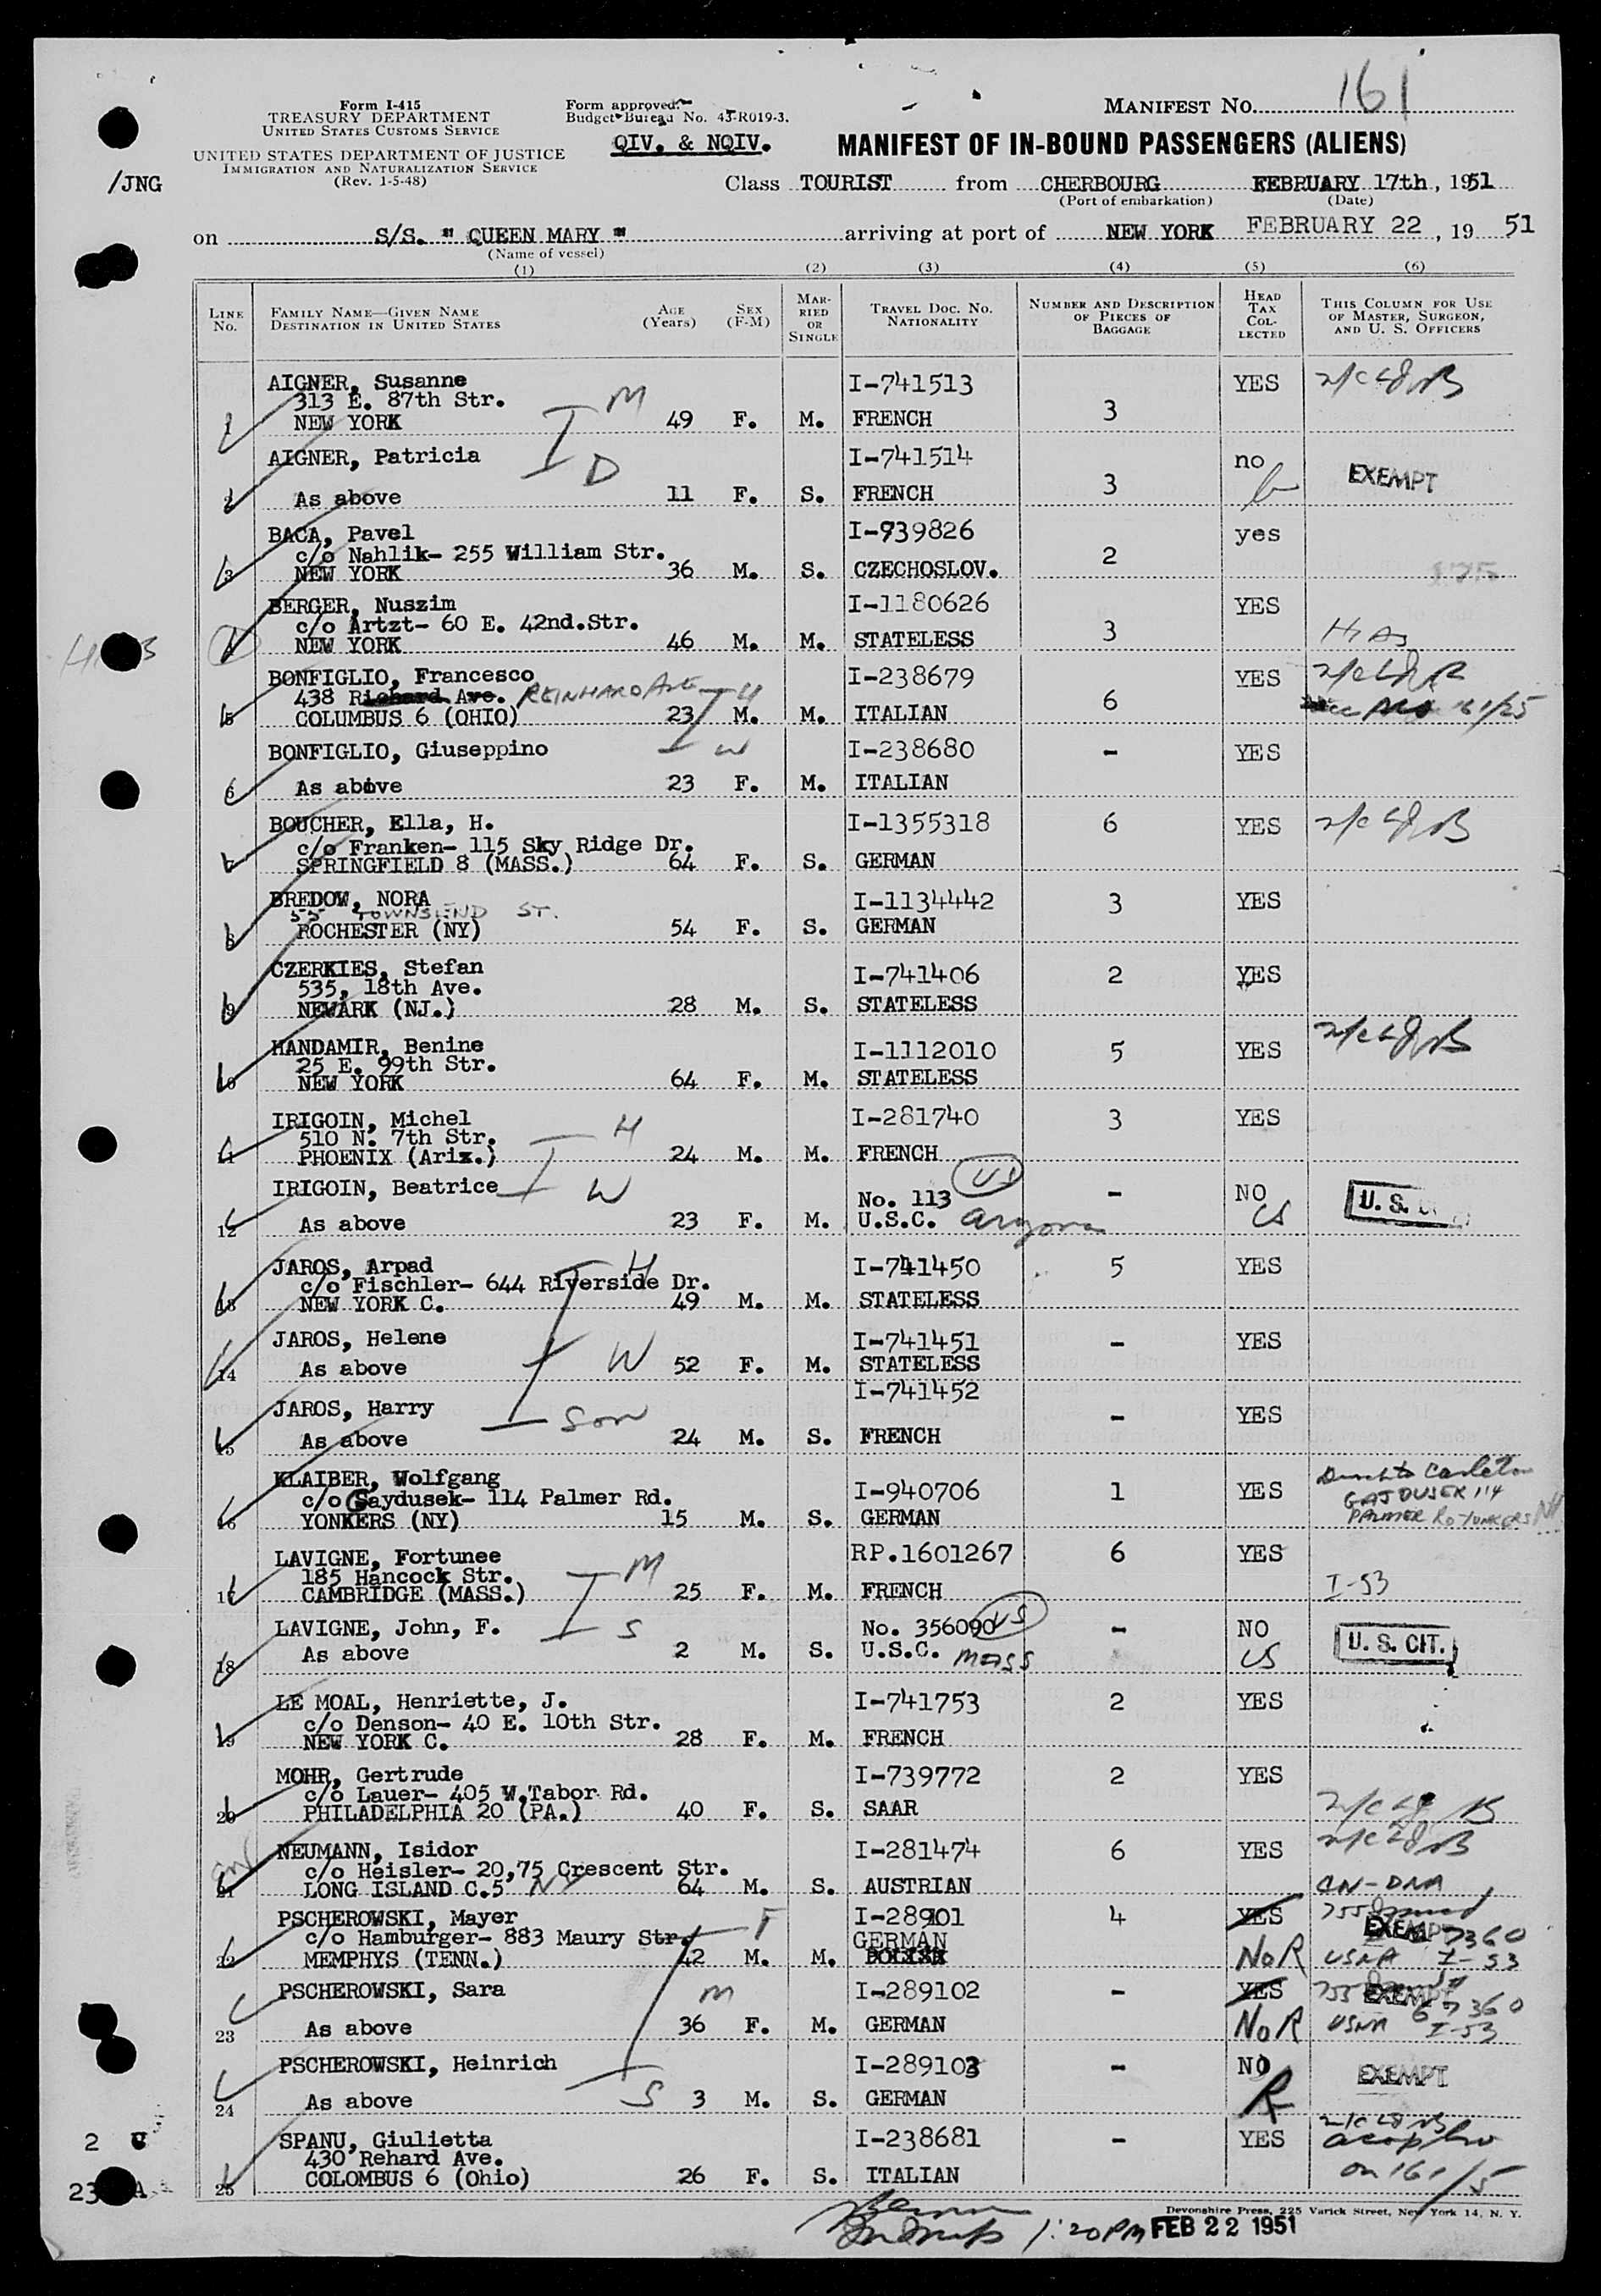 Form I-415
TREASURY DEPARTMENT
UNITED STATES CUSTOMS SERVICE
UNITED STATES DEPARTMENT OF JUSTICE
IMMIGRATION AND NATURALIZATION SERVICE
(Rev. 1-5-48)
/JNG
Form approved.
Budget Bureau No. 43-R019-3.
QIV. & NQIV.
MANIFEST NO. 161
MANIFEST OF IN-BOUND PASSENGERS (ALIENS)
Class TOURIST from CHERBOURG FEBRUARY 17th, 1951
(Port of embarkation) (Date)
on S/S. " QUEEN MARY " arriving at port of NEW YORK FEBRUARY 22, 19 51
(Name of vessel)
(1) (2) (3) (4) (5) (6)
LINE No. FAMILY NAME—GIVEN NAME DESTINATION IN UNITED STATES AGE (Years) SEX (F-M) MARRIED OR SINGLE TRAVEL DOC. NO. NATIONALITY NUMBER AND DESCRIPTION OF PIECES OF BAGGAGE HEAD TAX COLLECTED THIS COLUMN FOR USE OF MASTER, SURGEON, AND U. S. OFFICERS
AIGNER, Susanne I-741513 YES
313 E. 87th Str. M
1 NEW YORK 49 F. M. FRENCH 3
AIGNER, Patricia D I-741514 no EXEMPT
2 As above 11 F. S. FRENCH 3
BACA, Pavel I-939826 yes
c/o Nahlik- 255 William Str. 2
3 NEW YORK 36 M. S. CZECHOSLOV.
BERGER, Nuszim I-1180626 YES
c/o Artzt- 60 E. 42nd.Str. 3
NEW YORK 46 M. M. STATELESS
BONFIGLIO, Francesco I-238679 YES
438 Richard Ave. REINHARD AVE H 6
5 COLUMBUS 6 (OHIO) 23 M. M. ITALIAN 161/25
BONFIGLIO, Giuseppino W I-238680 - YES
6 As above 23 F. M. ITALIAN
BOUCHER, Ella, H. I-1355318 6 YES
c/o Franken- 115 Sky Ridge Dr.
7 SPRINGFIELD 8 (MASS.) 64 F. S. GERMAN
BREDOW, NORA I-1134442 3 YES
55 TOWNSEND ST.
8 ROCHESTER (NY) 54 F. S. GERMAN
CZERKIES, Stefan I-741406 2 YES
535, 18th Ave.
9 NEWARK (NJ.) 28 M. S. STATELESS
HANDAMIR, Benine I-1112010 5 YES
25 E. 99th Str.
10 NEW YORK 64 F. M. STATELESS
IRIGOIN, Michel H I-281740 3 YES
510 N. 7th Str.
11 PHOENIX (Ariz.) 24 M. M. FRENCH
IRIGOIN, Beatrice W No. 113 US - NO U. S.
12 As above 23 F. M. U.S.C. US
JAROS, Arpad H I-741450 5 YES
c/o Fischler- 644 Riverside Dr.
13 NEW YORK C. 49 M. M. STATELESS
JAROS, Helene I-741451 - YES
14 As above W 52 F. M. STATELESS
JAROS, Harry Son I-741452 - YES
15 As above 24 M. S. FRENCH
KLAIBER, Wolfgang I-940706 1 YES
c/o Gaydusek- 114 Palmer Rd. GAJDUSEK 114
16 YONKERS (NY) 15 M. S. GERMAN PALMER RD YONKERS NY
LAVIGNE, Fortunee M RP.1601267 6 YES
185 Hancock Str.
17 CAMBRIDGE (MASS.) 25 F. M. FRENCH I-53
LAVIGNE, John, F. S No. 356090 US - NO U. S. CIT.
18 As above 2 M. S. U.S.C. MASS US
LE MOAL, Henriette, J. I-741753 2 YES
c/o Denson- 40 E. 10th Str.
19 NEW YORK C. 28 F. M. FRENCH
MOHR, Gertrude I-739772 2 YES
c/o Lauer- 405 W.Tabor Rd.
20 PHILADELPHIA 20 (PA.) 40 F. S. SAAR
NEUMANN, Isidor I-281474 6 YES
c/o Heisler- 20,75 Crescent Str.
21 LONG ISLAND C.5 NY 64 M. S. AUSTRIAN
PSCHEROWSKI, Mayer F I-289101 4 YES
c/o Hamburger- 883 Maury Str. GERMAN EXEMPT
22 MEMPHYS (TENN.) 42 M. M. POLISH NOR USNA I-53
PSCHEROWSKI, Sara M I-289102 - YES EXEMPT
23 As above 36 F. M. GERMAN NOR USNA I-53
PSCHEROWSKI, Heinrich I-289103 - NO EXEMPT
24 As above S 3 M. S. GERMAN R
SPANU, Giulietta I-238681 - YES
430 Rehard Ave.
25 COLOMBUS 6 (Ohio) 26 F. S. ITALIAN on 161/5
Devonshire Press, 225 Varick Street, New York 14, N. Y.
1:20PM FEB 22 1951